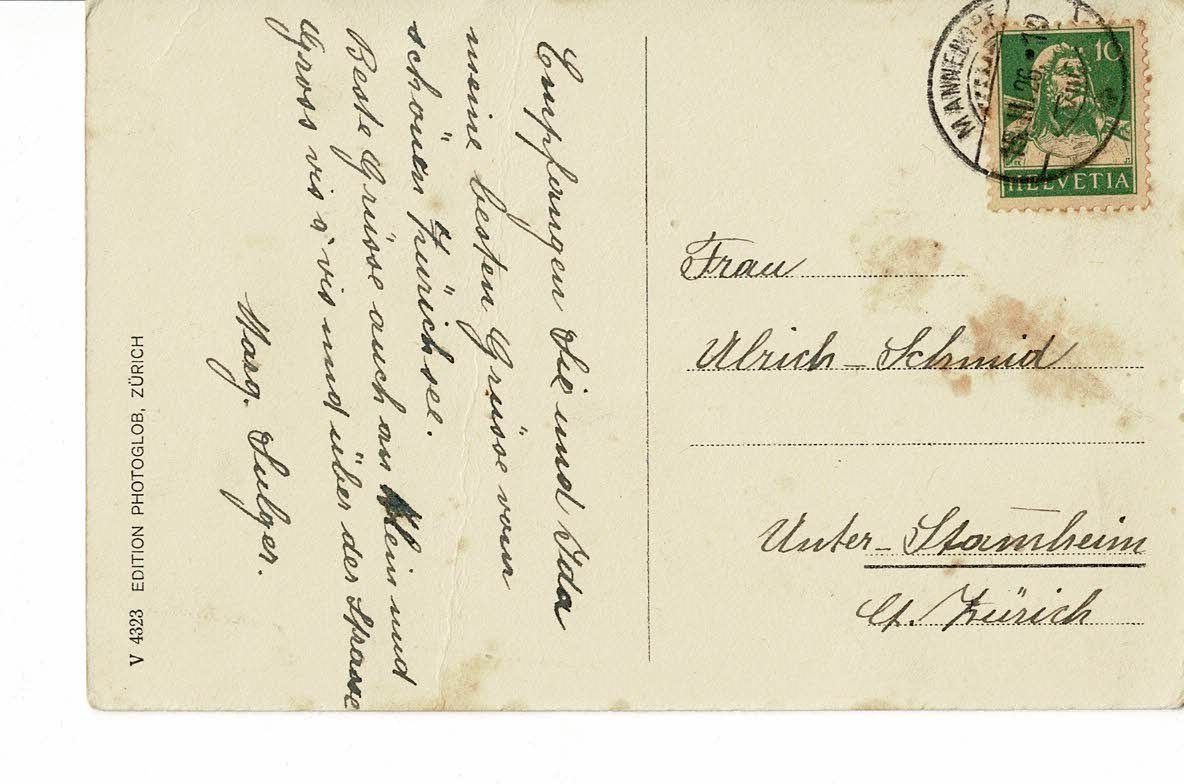 Empfangen Sie und Ida
meine besten Grüsse vom
schönen Zürichsee.
Beste Grüsse auch an Klein und
Gross vis à vis und über der Strasse
Marg. Sulger.
V 4323 EDITION PHOTOGLOB, ZÜRICH
MÄNNEDORF
10
HELVETIA
Frau
Ulrich-Schmid
Unter-Stam̅heim
Ct. Zürich